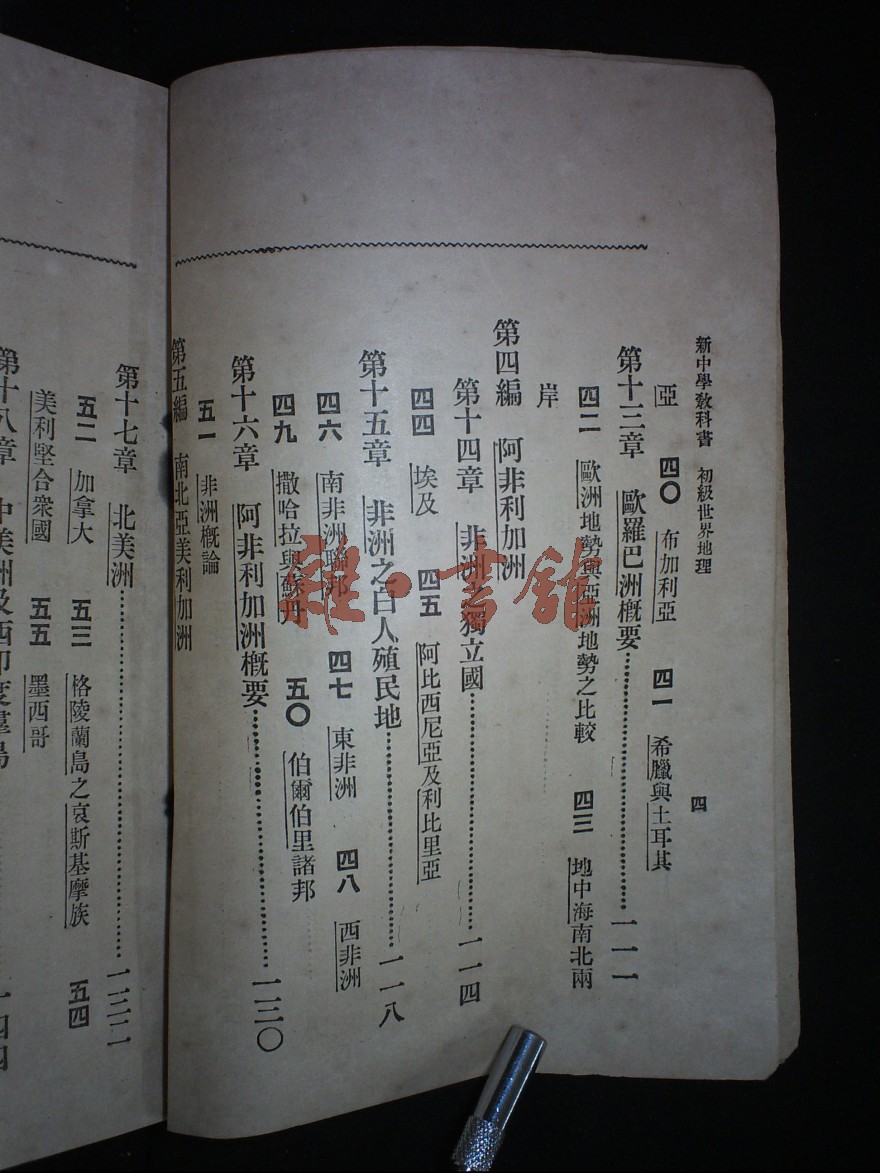 新中學教科書　初級世界地理　四
亞　四〇　布加利亞　四一　希臘與土耳其
第十三章　歐羅巴洲概要……一一一
四二　歐洲地勢與亞洲地勢之比較　四三　地中海南北兩
岸
第四編　阿非利加洲
第十四章　非洲之獨立國……一一四
四四　埃及　四五　阿比西尼亞及利比里亞
第十五章　非洲之白人殖民地……一一八
四六　南非洲聯邦　四七　東非洲　四八　西非洲
四九　撒哈拉與蘇丹　五〇　伯爾伯里諸邦
第十六章　阿非利加洲概要……一三〇
五一　非洲概論
第五編　南北亞美利加洲
第十七章　北美洲……一三二
五二　加拿大　五三　格陵蘭島之哀斯基摩族　五四
美利堅合衆國　五五　墨西哥
第十八章　中美洲及西印度羣島
雜·書館